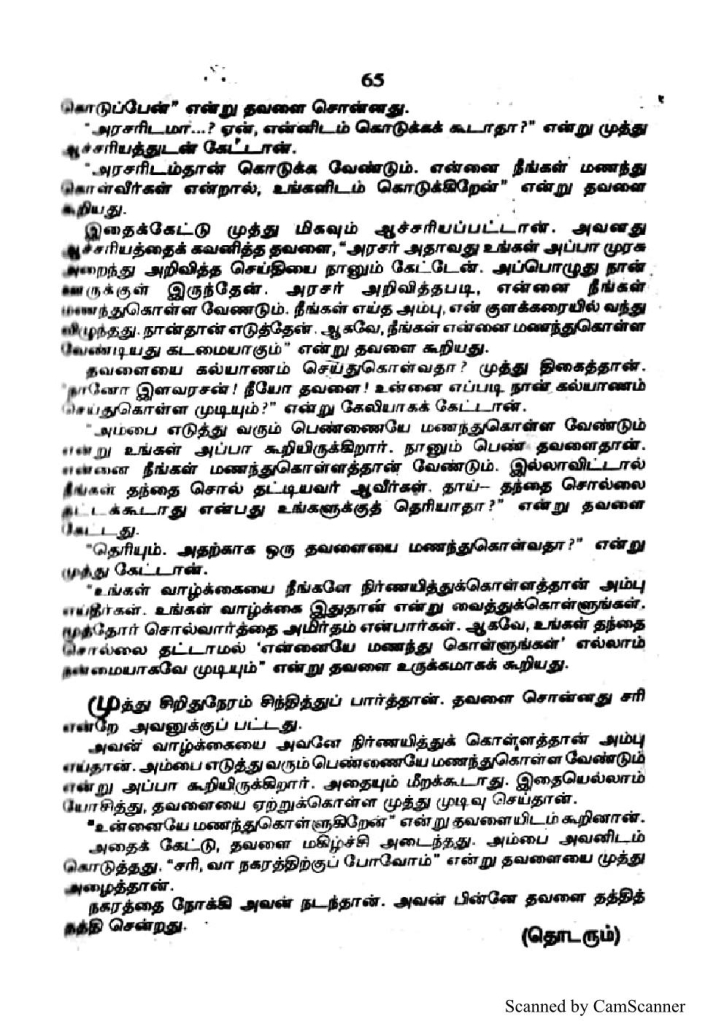 65
கொடுப்பேன்" என்று தவளை சொன்னது.
"அரசரிடமா...? ஏன், என்னிடம் கொடுக்கக் கூடாதா?" என்று முத்து
ஆச்சரியத்துடன் கேட்டான்.
"அரசரிடம்தான் கொடுக்க வேண்டும். என்னை நீங்கள் மணந்து
கொள்வீர்கள் என்றால், உங்களிடம் கொடுக்கிறேன்" என்று தவளை
கூறியது.
இதைக்கேட்டு முத்து மிகவும் ஆச்சரியப்பட்டான். அவனது
ஆச்சரியத்தைக் கவனித்த தவளை, "அரசர் அதாவது உங்கள் அப்பா முரசு
அறைந்து அறிவித்த செய்தியை நானும் கேட்டேன். அப்பொழுது நான்
ஊருக்குள் இருந்தேன். அரசர் அறிவித்தபடி, என்னை நீங்கள்
மணந்துகொள்ள வேணடும். நீங்கள் எய்த அம்பு, என் குளக்கரையில் வந்து
விழுந்தது. நான்தான் எடுத்தேன். ஆகவே, நீங்கள் என்னை மணந்துகொள்ள
வேண்டியது கடமையாகும்" என்று தவளை கூறியது.
தவளையை கல்யாணம் செய்துகொள்வதா? முத்து திகைத்தான்.
"நானோ இளவரசன்! நீயோ தவளை! உன்னை எப்படி நான் கல்யாணம்
செய்துகொள்ள முடியும்?" என்று கேலியாகக் கேட்டான்.
"அம்பை எடுத்து வரும் பெண்ணையே மணந்துகொள்ள வேண்டும்
என்று உங்கள் அப்பா கூறியிருக்கிறார். நானும் பெண் தவளைதான்.
என்னை நீங்கள் மணந்துகொள்ளத்தான் வேண்டும். இல்லாவிட்டால்
நீங்கள் தந்தை சொல் தட்டியவர் ஆவீர்கள். தாய்– தந்தை சொல்லை
தட்டக்கூடாது என்பது உங்களுக்குத் தெரியாதா?" என்று தவளை
கேட்டது.
"தெரியும். அதற்காக ஒரு தவளையை மணந்துகொள்வதா?" என்று
முத்து கேட்டான்.
"உங்கள் வாழ்க்கையை நீங்களே நிர்ணயித்துக்கொள்ளத்தான் அம்பு
எய்தீர்கள். உங்கள் வாழ்க்கை இதுதான் என்று வைத்துக்கொள்ளுங்கள்.
மூத்தோர் சொல்வார்த்தை அமிர்தம் என்பார்கள். ஆகவே, உங்கள் தந்தை
சொல்லை தட்டாமல் 'என்னையே மணந்து கொள்ளுங்கள்' எல்லாம்
நன்மையாகவே முடியும்" என்று தவளை உருக்கமாகக் கூறியது.
முத்து சிறிதுநேரம் சிந்தித்துப் பார்த்தான். தவளை சொன்னது சரி
என்றே அவனுக்குப் பட்டது.
அவன் வாழ்க்கையை அவனே நிர்ணயித்துக் கொள்ளத்தான் அம்பு
எய்தான். அம்பை எடுத்து வரும் பெண்ணையே மணந்துகொள்ள வேண்டும்
என்று அப்பா கூறியிருக்கிறார். அதையும் மீறக்கூடாது. இதையெல்லாம்
யோசித்து, தவளையை ஏற்றுக்கொள்ள முத்து முடிவு செய்தான்.
"உன்னையே மணந்துகொள்ளுகிறேன்" என்று தவளையிடம் கூறினான்.
அதைக் கேட்டு, தவளை மகிழ்ச்சி அடைந்தது. அம்பை அவனிடம்
கொடுத்தது. "சரி, வா நகரத்திற்குப் போவோம்" என்று தவளையை முத்து
அழைத்தான்.
நகரத்தை நோக்கி அவன் நடந்தான். அவன் பின்னே தவளை தத்தித்
தத்தி சென்றது.
(தொடரும்)
Scanned by CamScanner